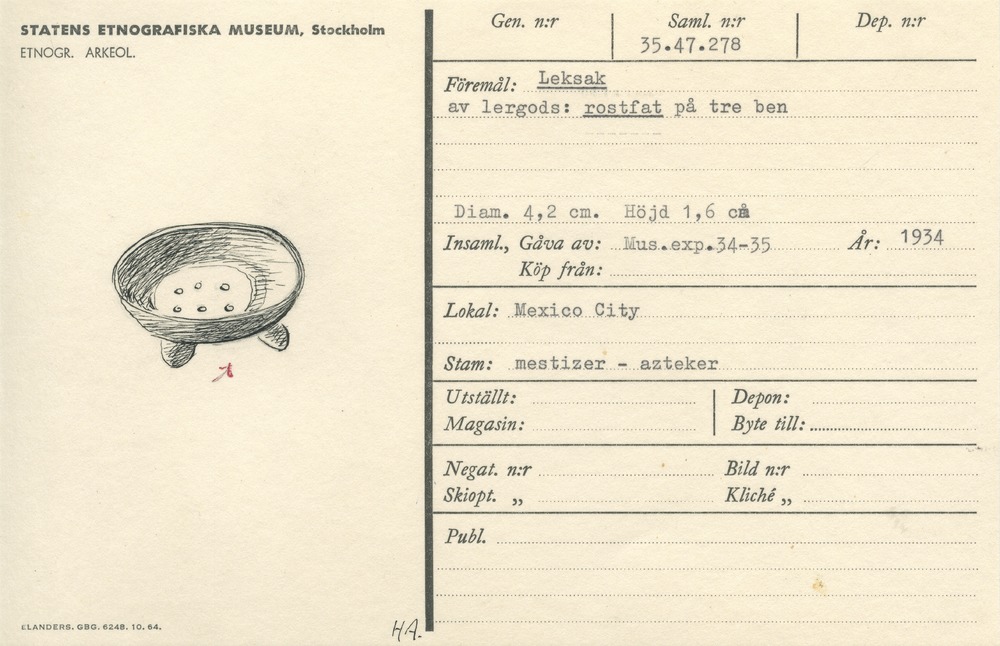 STATENS ETNOGRAFISKA MUSEUM, Stockholm
ETNOGR. ARKEOL.
Gen. n:r
Saml. n:r
35.47.278
Dep. n:r
Föremål: Leksak
av lergods: rostfat på tre ben
Diam. 4,2 cm. Höjd 1,6 cm
Insaml., Gåva av: Mus.exp.34-35 År: 1934
Köp från:
Lokal: Mexico City
Stam: mestizer - azteker
Utställt: Depon:
Magasin: Byte till:
Negat. n:r Bild n:r
Skiopt. „ Kliché „
Publ.
ELANDERS. GBG. 6248. 10. 64.
HA.